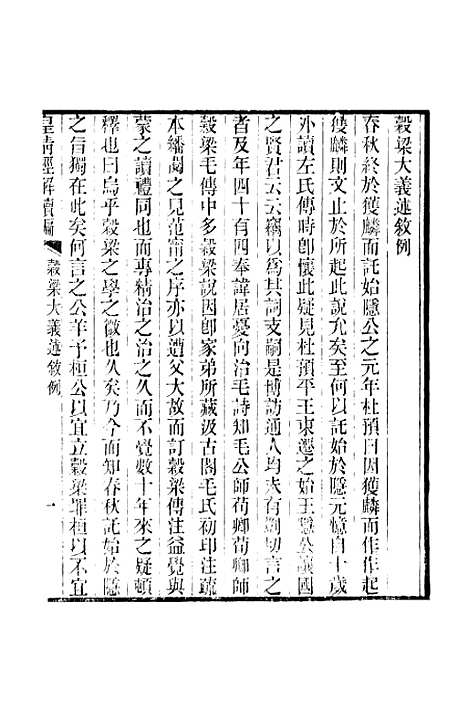 穀梁大義述敘例
春秋終於獲麟而託始隱公之元年杜預曰因獲麟而作作起
獲麟則文止於所起此說允矣至何以託始於隱元憶自十歲
外讀左氏傳時卽懷此疑見杜預平王東遷之始王隱公讓國
之賢君云云竊以爲其詞支嗣是博訪通人均未有剴切言之
者及年四十有四奉諱居憂向治毛詩知毛公師荀卿荀卿師
穀梁毛傳中多穀梁說因卽家弟所藏汲古閣毛氏初印注疏
本繙閱之見范甯之序亦以遭父大故而訂穀梁傳注益覺與
蒙之讀禮同也而專精治之治之久而不覺數十年來之疑頓
釋也曰烏乎穀梁之學之微也久矣乃今而知春秋託始於隱
之旨獨在此矣何言之公羊予桓公以宜立穀梁罪桓以不宜
皇清經解續編
穀梁大義述敘例
一